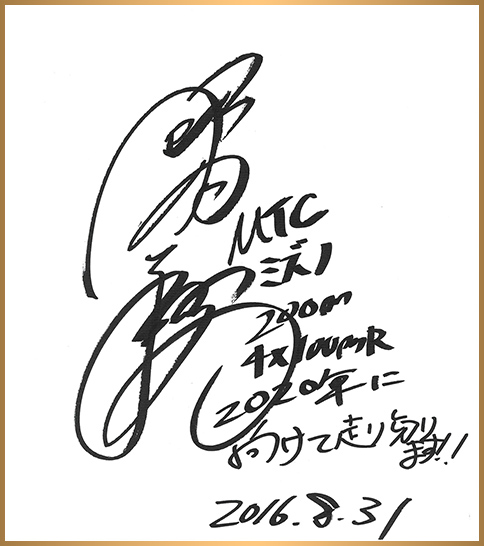 MTC
ミズノ
200m
4×100mR
2020年に
向けて走り切り
ます!!
2016.8.31